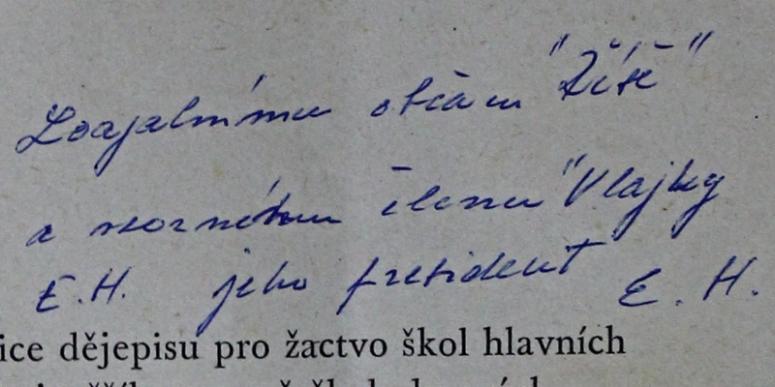 Loajalnímu občanu "Říše"
a vzornému členu "Vlajky
E.H. jeho president E. H.
ice dějepisu pro žactvo škol hlavních